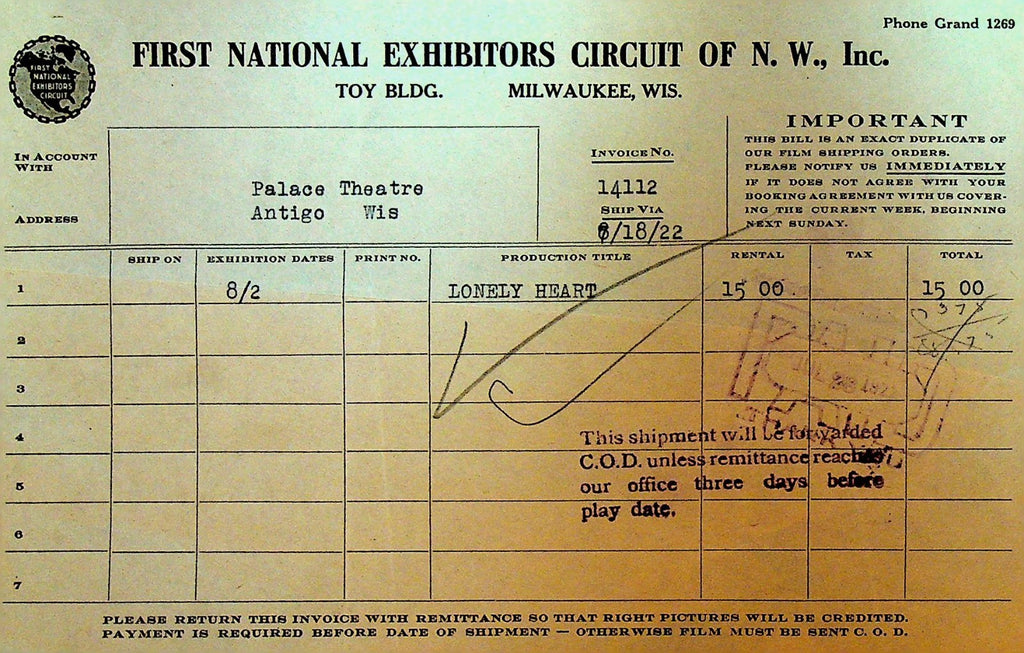 Phone Grand 1269
FIRST NATIONAL EXHIBITORS CIRCUIT OF N. W., Inc.
FIRST
NATIONAL
EXHIBITORS
CIRCUIT
TOY BLDG. MILWAUKEE, WIS.
IMPORTANT
THIS BILL IS AN EXACT DUPLICATE OF
OUR FILM SHIPPING ORDERS.
PLEASE NOTIFY US IMMEDIATELY
IF IT DOES NOT AGREE WITH YOUR
BOOKING AGREEMENT WITH US COVER-
ING THE CURRENT WEEK, BEGINNING
NEXT SUNDAY.
IN ACCOUNT
WITH
Palace Theatre
ADDRESS
Antigo Wis
INVOICE NO.
14112
SHIP VIA
/18/22
SHIP ON EXHIBITION DATES PRINT NO. PRODUCTION TITLE RENTAL TAX TOTAL
1 8/2 LONELY HEART 15 00 15 00
2
3
4
5
6
7
This shipment will be forwarded
C.O.D. unless remittance reaches
our office three days before
play date.
PLEASE RETURN THIS INVOICE WITH REMITTANCE SO THAT RIGHT PICTURES WILL BE CREDITED.
PAYMENT IS REQUIRED BEFORE DATE OF SHIPMENT — OTHERWISE FILM MUST BE SENT C. O. D.